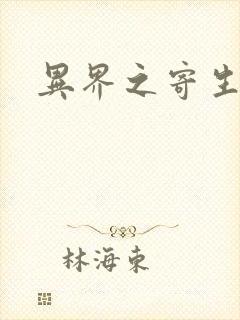 異界之寄生
林海東